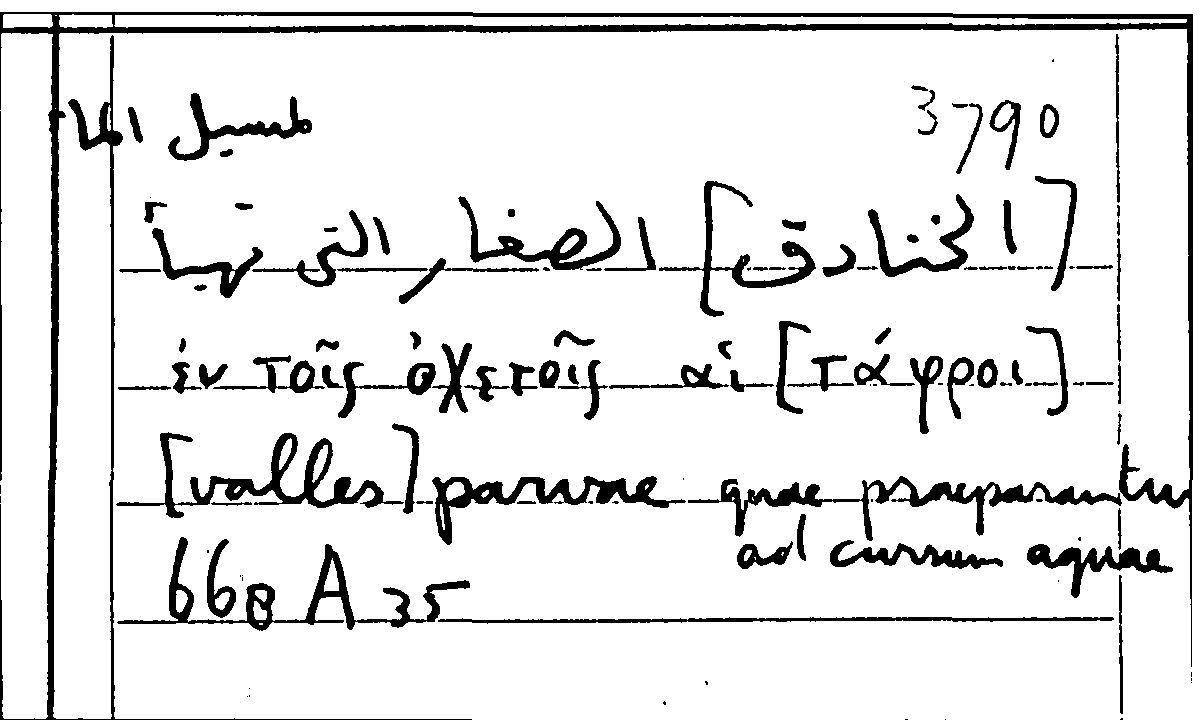 3790
لمسيل الما
[الخنادق] الصغار التى تهيأ
ἐν τοῖς ὀχετοῖς αἱ [τάφροι]
[valles] parvae quae praeparantu
ad cursum aquae
668 A 35